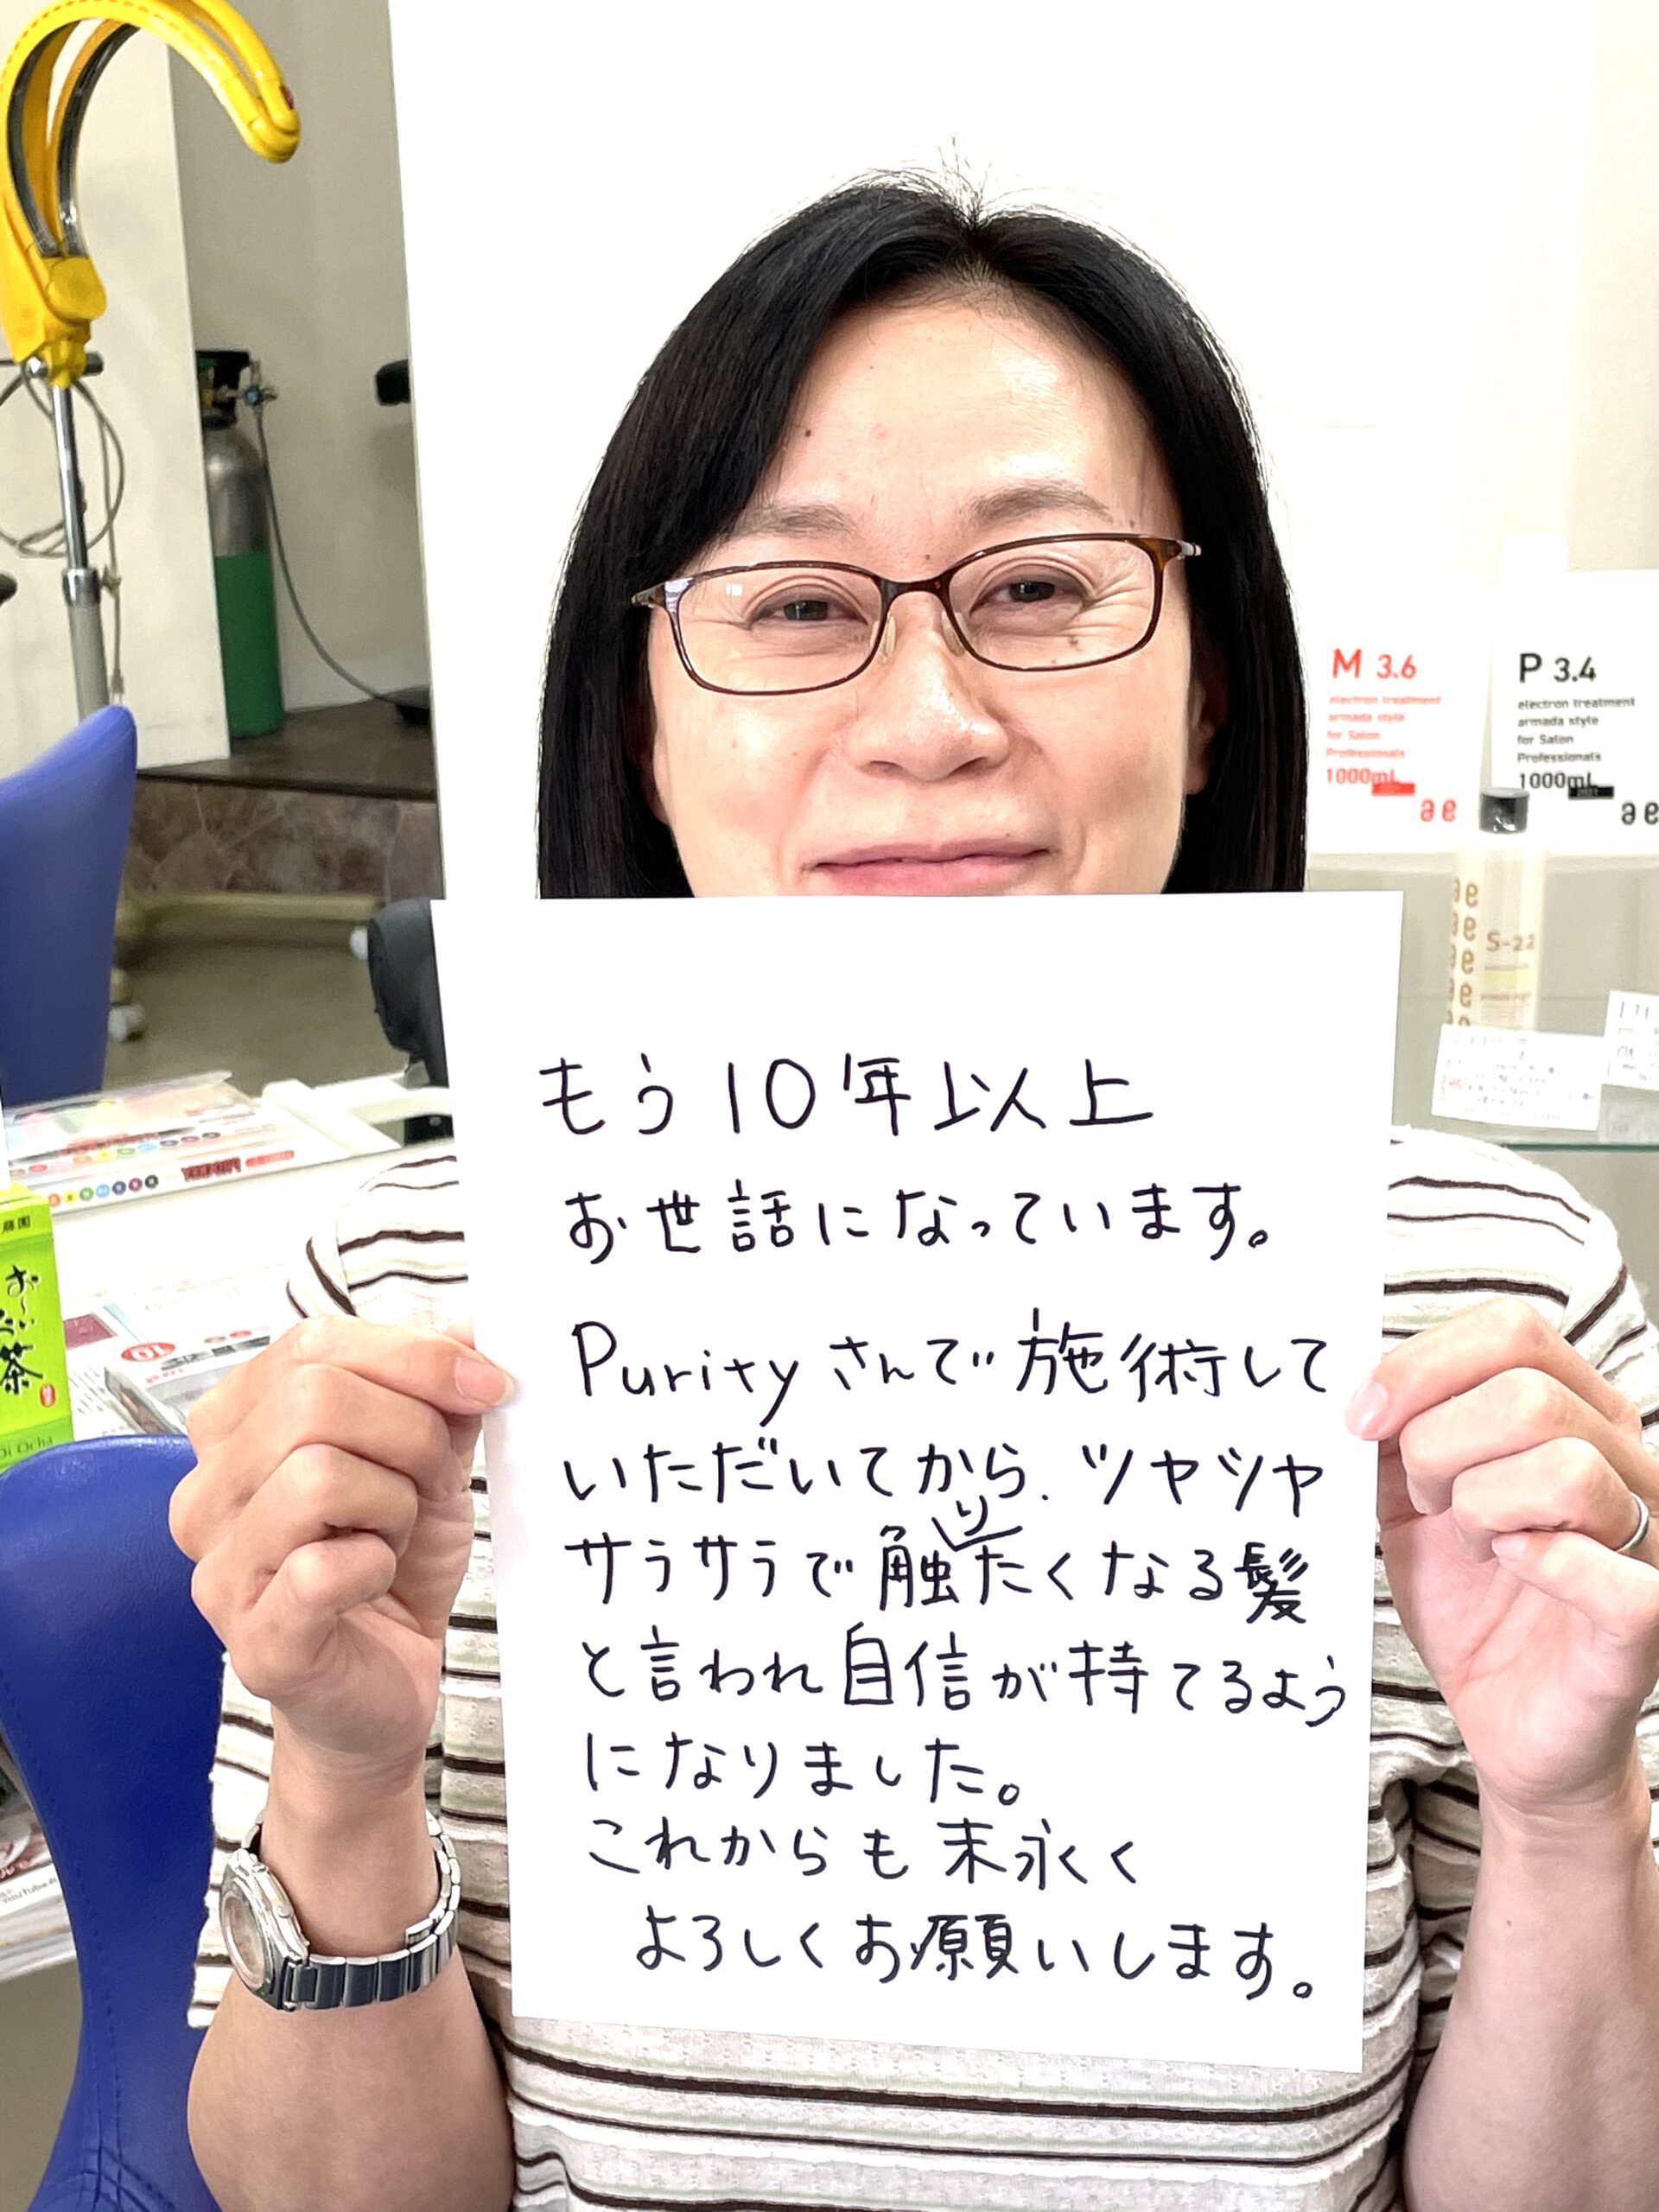 もう10年以上
お世話になっています。
Purityさんで施術して
いただいてから、ツヤツヤ
サラサラで触りたくなる髪
と言われ自信が持てるよう
になりました。
これからも末永く
よろしくお願いします。
M 3.6
electron treatment
armada style
for Salon
Professionals
1000mL
P 3.4
electron treatment
armada style
for Salon
Professionals
1000mL
S-22
お～い
お茶
Oi Ocha